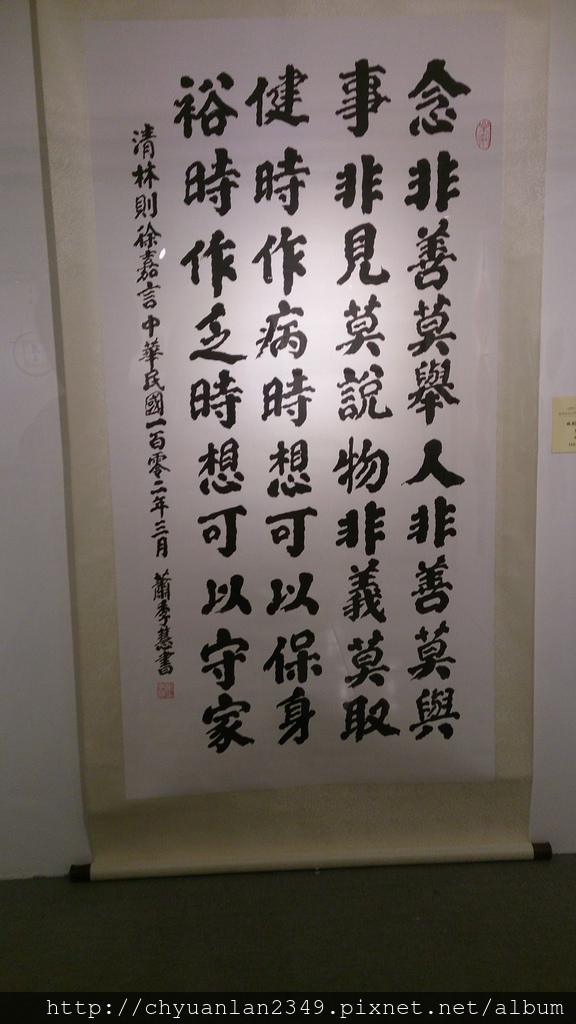 念非善莫舉人非善莫與
事非見莫說物非義莫取
健時作病時想可以保身
裕時作乏時想可以守家
清林則徐嘉言中華民國一百零二年三月蕭季慧書
http://chyuanlan2349.pixnet.net/album